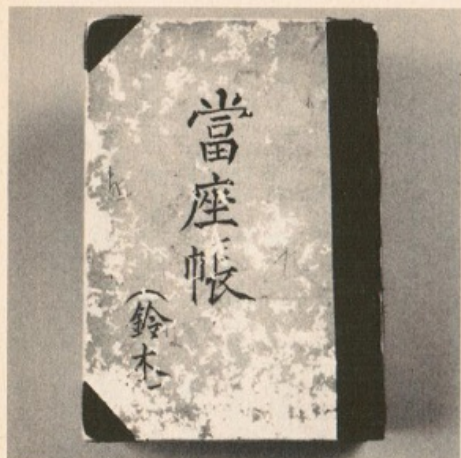 當座帳
(鈴木)